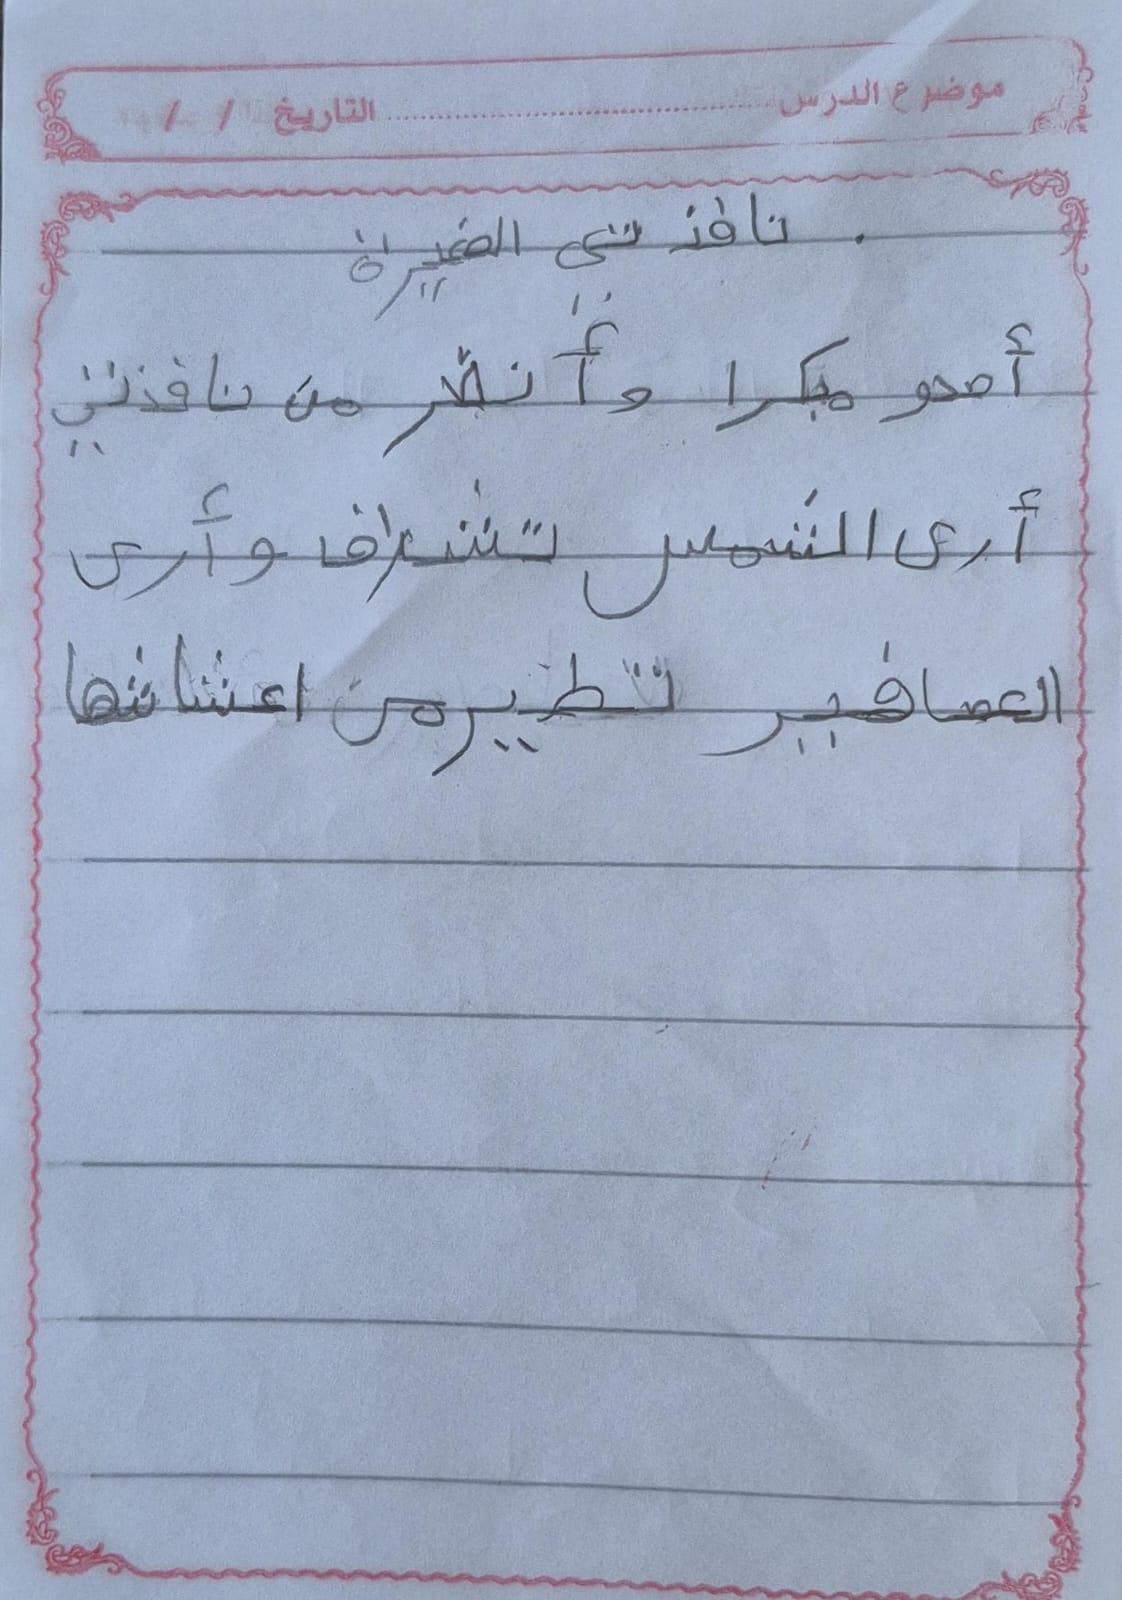 موضوع الدرس ........................ التاريخ / /
نافذتي الصغيرة
أصحو مبكرا وأنظر من نافذتي
أرى الشمس تشرق وأرى
العصافير تطير من اعشاشها